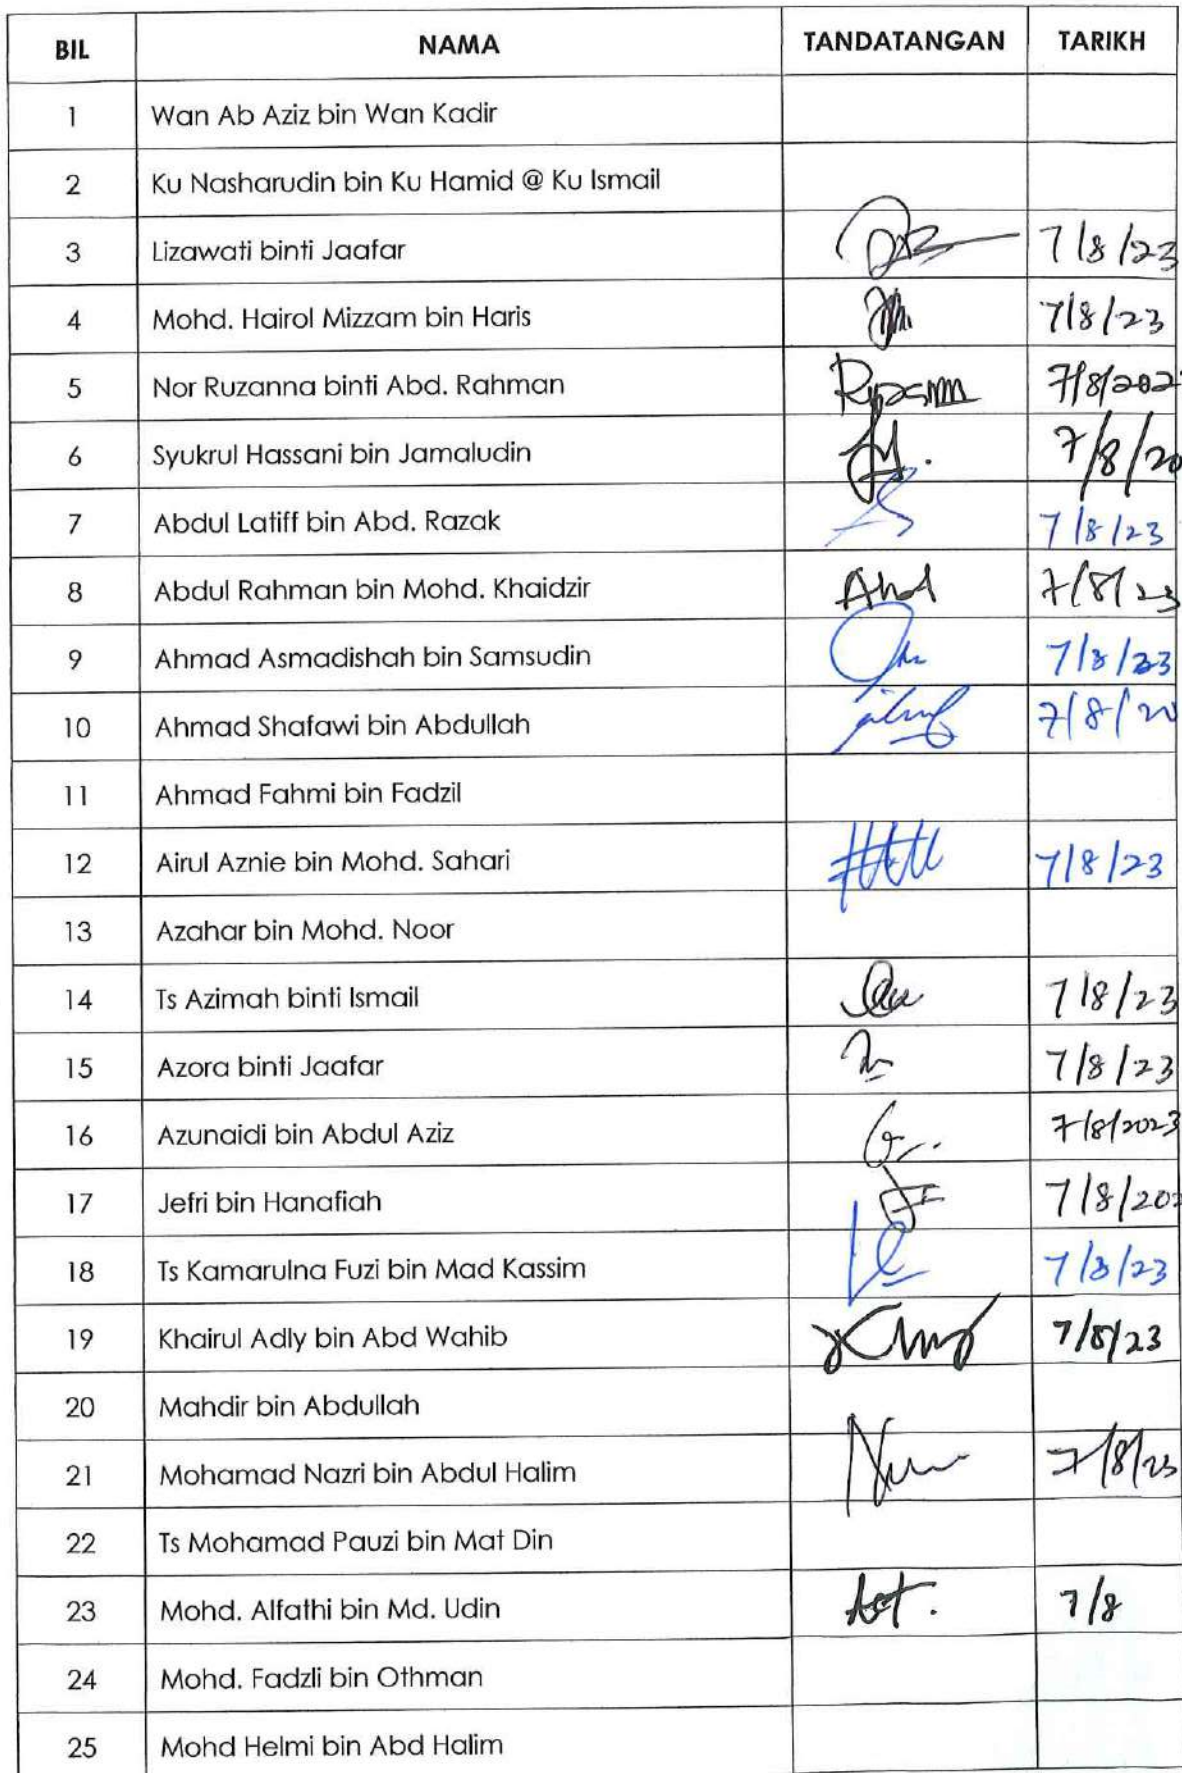 BIL NAMA TANDATANGAN TARIKH
1 Wan Ab Aziz bin Wan Kadir
2 Ku Nasharudin bin Ku Hamid @ Ku Ismail
3 Lizawati binti Jaafar 7/8/23
4 Mohd. Hairol Mizzam bin Haris 7/8/23
5 Nor Ruzanna binti Abd. Rahman 7/8/202
6 Syukrul Hassani bin Jamaludin 7/8/20
7 Abdul Latiff bin Abd. Razak 7/8/23
8 Abdul Rahman bin Mohd. Khaidzir 7/8/23
9 Ahmad Asmadishah bin Samsudin 7/8/23
10 Ahmad Shafawi bin Abdullah 7/8/20
11 Ahmad Fahmi bin Fadzil
12 Airul Aznie bin Mohd. Sahari 7/8/23
13 Azahar bin Mohd. Noor
14 Ts Azimah binti Ismail 7/8/23
15 Azora binti Jaafar 7/8/23
16 Azunaidi bin Abdul Aziz 7/8/2023
17 Jefri bin Hanafiah 7/8/202
18 Ts Kamarulna Fuzi bin Mad Kassim 7/8/23
19 Khairul Adly bin Abd Wahib 7/8/23
20 Mahdir bin Abdullah
21 Mohamad Nazri bin Abdul Halim 7/8/23
22 Ts Mohamad Pauzi bin Mat Din
23 Mohd. Alfathi bin Md. Udin 7/8
24 Mohd. Fadzli bin Othman
25 Mohd Helmi bin Abd Halim